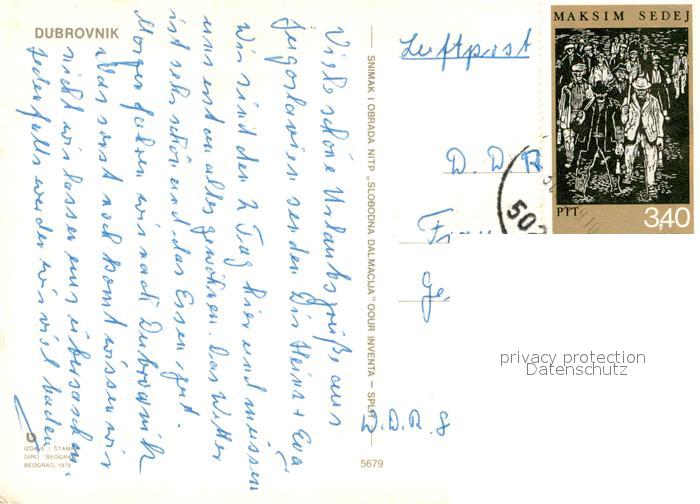 DUBROVNIK
Viele schöne Urlaubsgrüße aus
Jugoslavien senden Dir Heinz + Eva
Wir sind den 2 Tag hier und müssen
uns erst an alles gewöhnen. Das Wetter
ist sehr schön und das Essen gut.
Morgen fahren wir nach Dubrovnik
Was sonst noch komt wissen wir
nicht wir lassen uns überraschen
jedenfalls werden wir viel baden
IZDAJE I ŠTAMPA
GIRO "BEOGRAD
BEOGRAD, 1979
SNIMAK I OBRADA NITP „SLOBODNA DALMACIJA" OOUR INVENTA — SPLIT
5679
Luftpost
D.D.R
Frau
Ge
D.D.R. 8
MAKSIM SEDEJ
PTT 3,40
502
privacy protection
Datenschutz